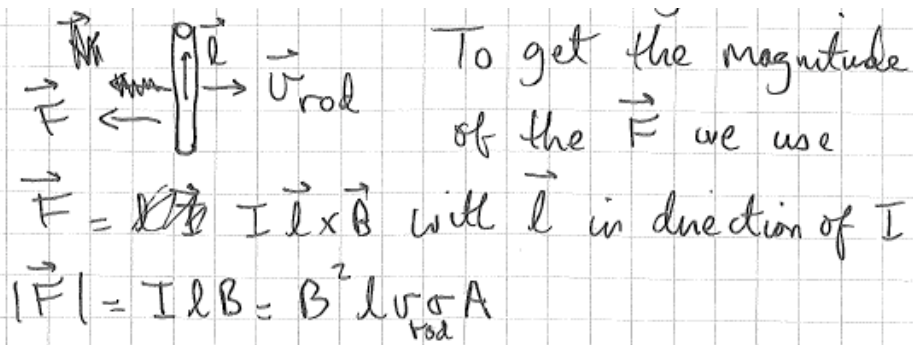 l⃗
To get the magnitude
F⃗ v⃗_rod
of the F⃗ we use
F⃗ = I l⃗ x B⃗ with l⃗ in direction of I
|F⃗| = I l B = B² l v_rod σ A